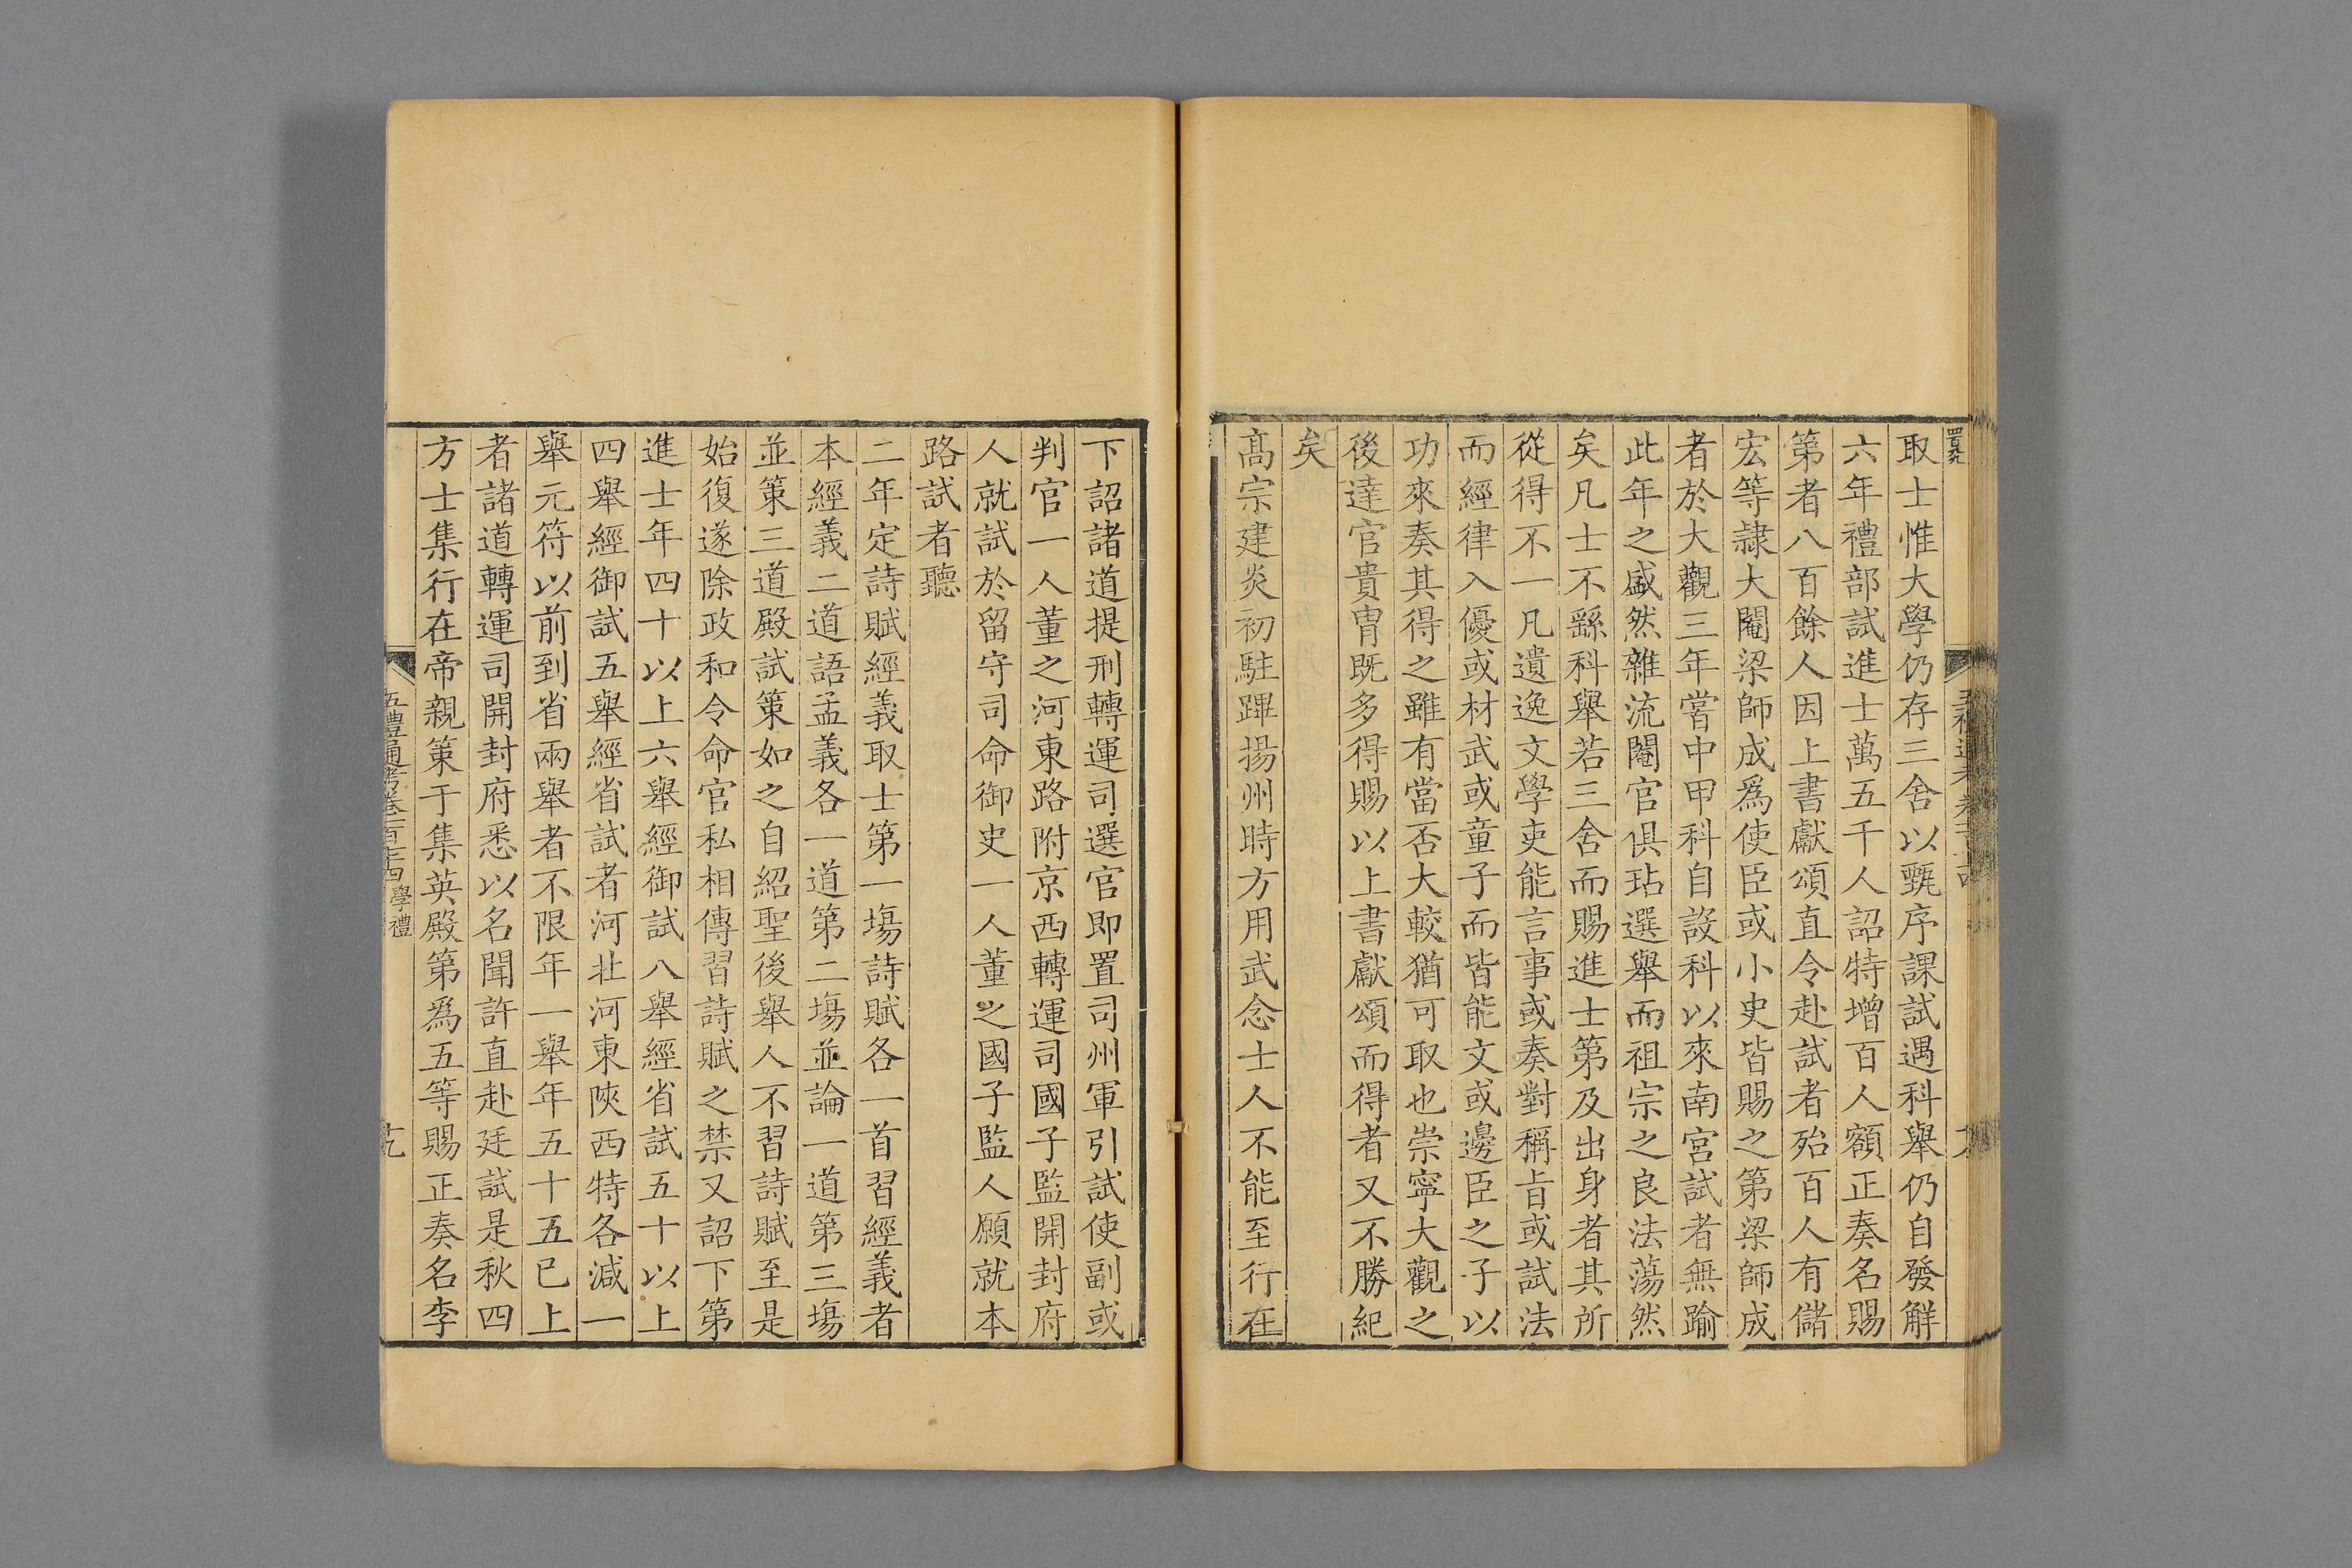 取士惟大學仍存三舍以甄序課試遇科舉仍自發解
六年禮部試進士萬五千人詔特增百人額正奏名賜
第者八百餘人因上書獻頌直令赴試者殆百人有儲
宏等隸大閹梁師成爲使臣或小史皆賜之第梁師成
者於大觀三年嘗中甲科自設科以來南宮試者無踰
此年之盛然雜流閹官俱玷選舉而祖宗之良法蕩然
矣凡士不繇科舉若三舍而賜進士第及出身者其所
從得不一凡遺逸文學吏能言事或奏對稱旨或試法
而經律入優或材武或童子而皆能文或邊臣之子以
功來奏其得之雖有當否大較猶可取也崇寧大觀之
後達官貴胄既多得賜以上書獻頌而得者又不勝紀
矣
髙宗建炎初駐蹕揚州時方用武念士人不能至行在
下詔諸道提刑轉運司選官即置司州軍引試使副或
判官一人董之河東路附京西轉運司國子監開封府
人就試於留守司命御史一人董之國子監人願就本
路試者聽
二年定詩賦經義取士第一場詩賦各一首習經義者
本經義二道語孟義各一道第二場並論一道第三場
並策三道殿試策如之自紹聖後舉人不習詩賦至是
始復遂除政和令命官私相傳習詩賦之禁又詔下第
進士年四十以上六舉經御試八舉經省試五十以上
四舉經御試五舉經省試者河北河東陝西特各減一
舉元符以前到省兩舉者不限年一舉年五十五已上
者諸道轉運司開封府悉以名聞許直赴廷試是秋四
方士集行在帝親策于集英殿第爲五等賜正奏名李
五禮通考卷一百七十四 學禮
十九